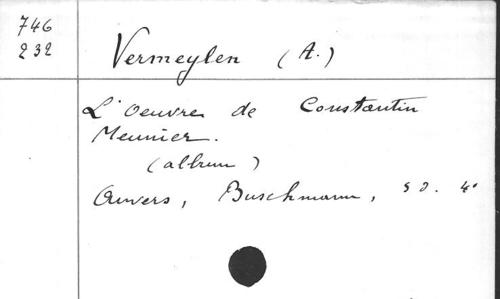 746
232
Vermeylen (A.)
L'Oeuvre de Constantin
Meunier.
(album)
Anvers, Buschmann, s d. 4°